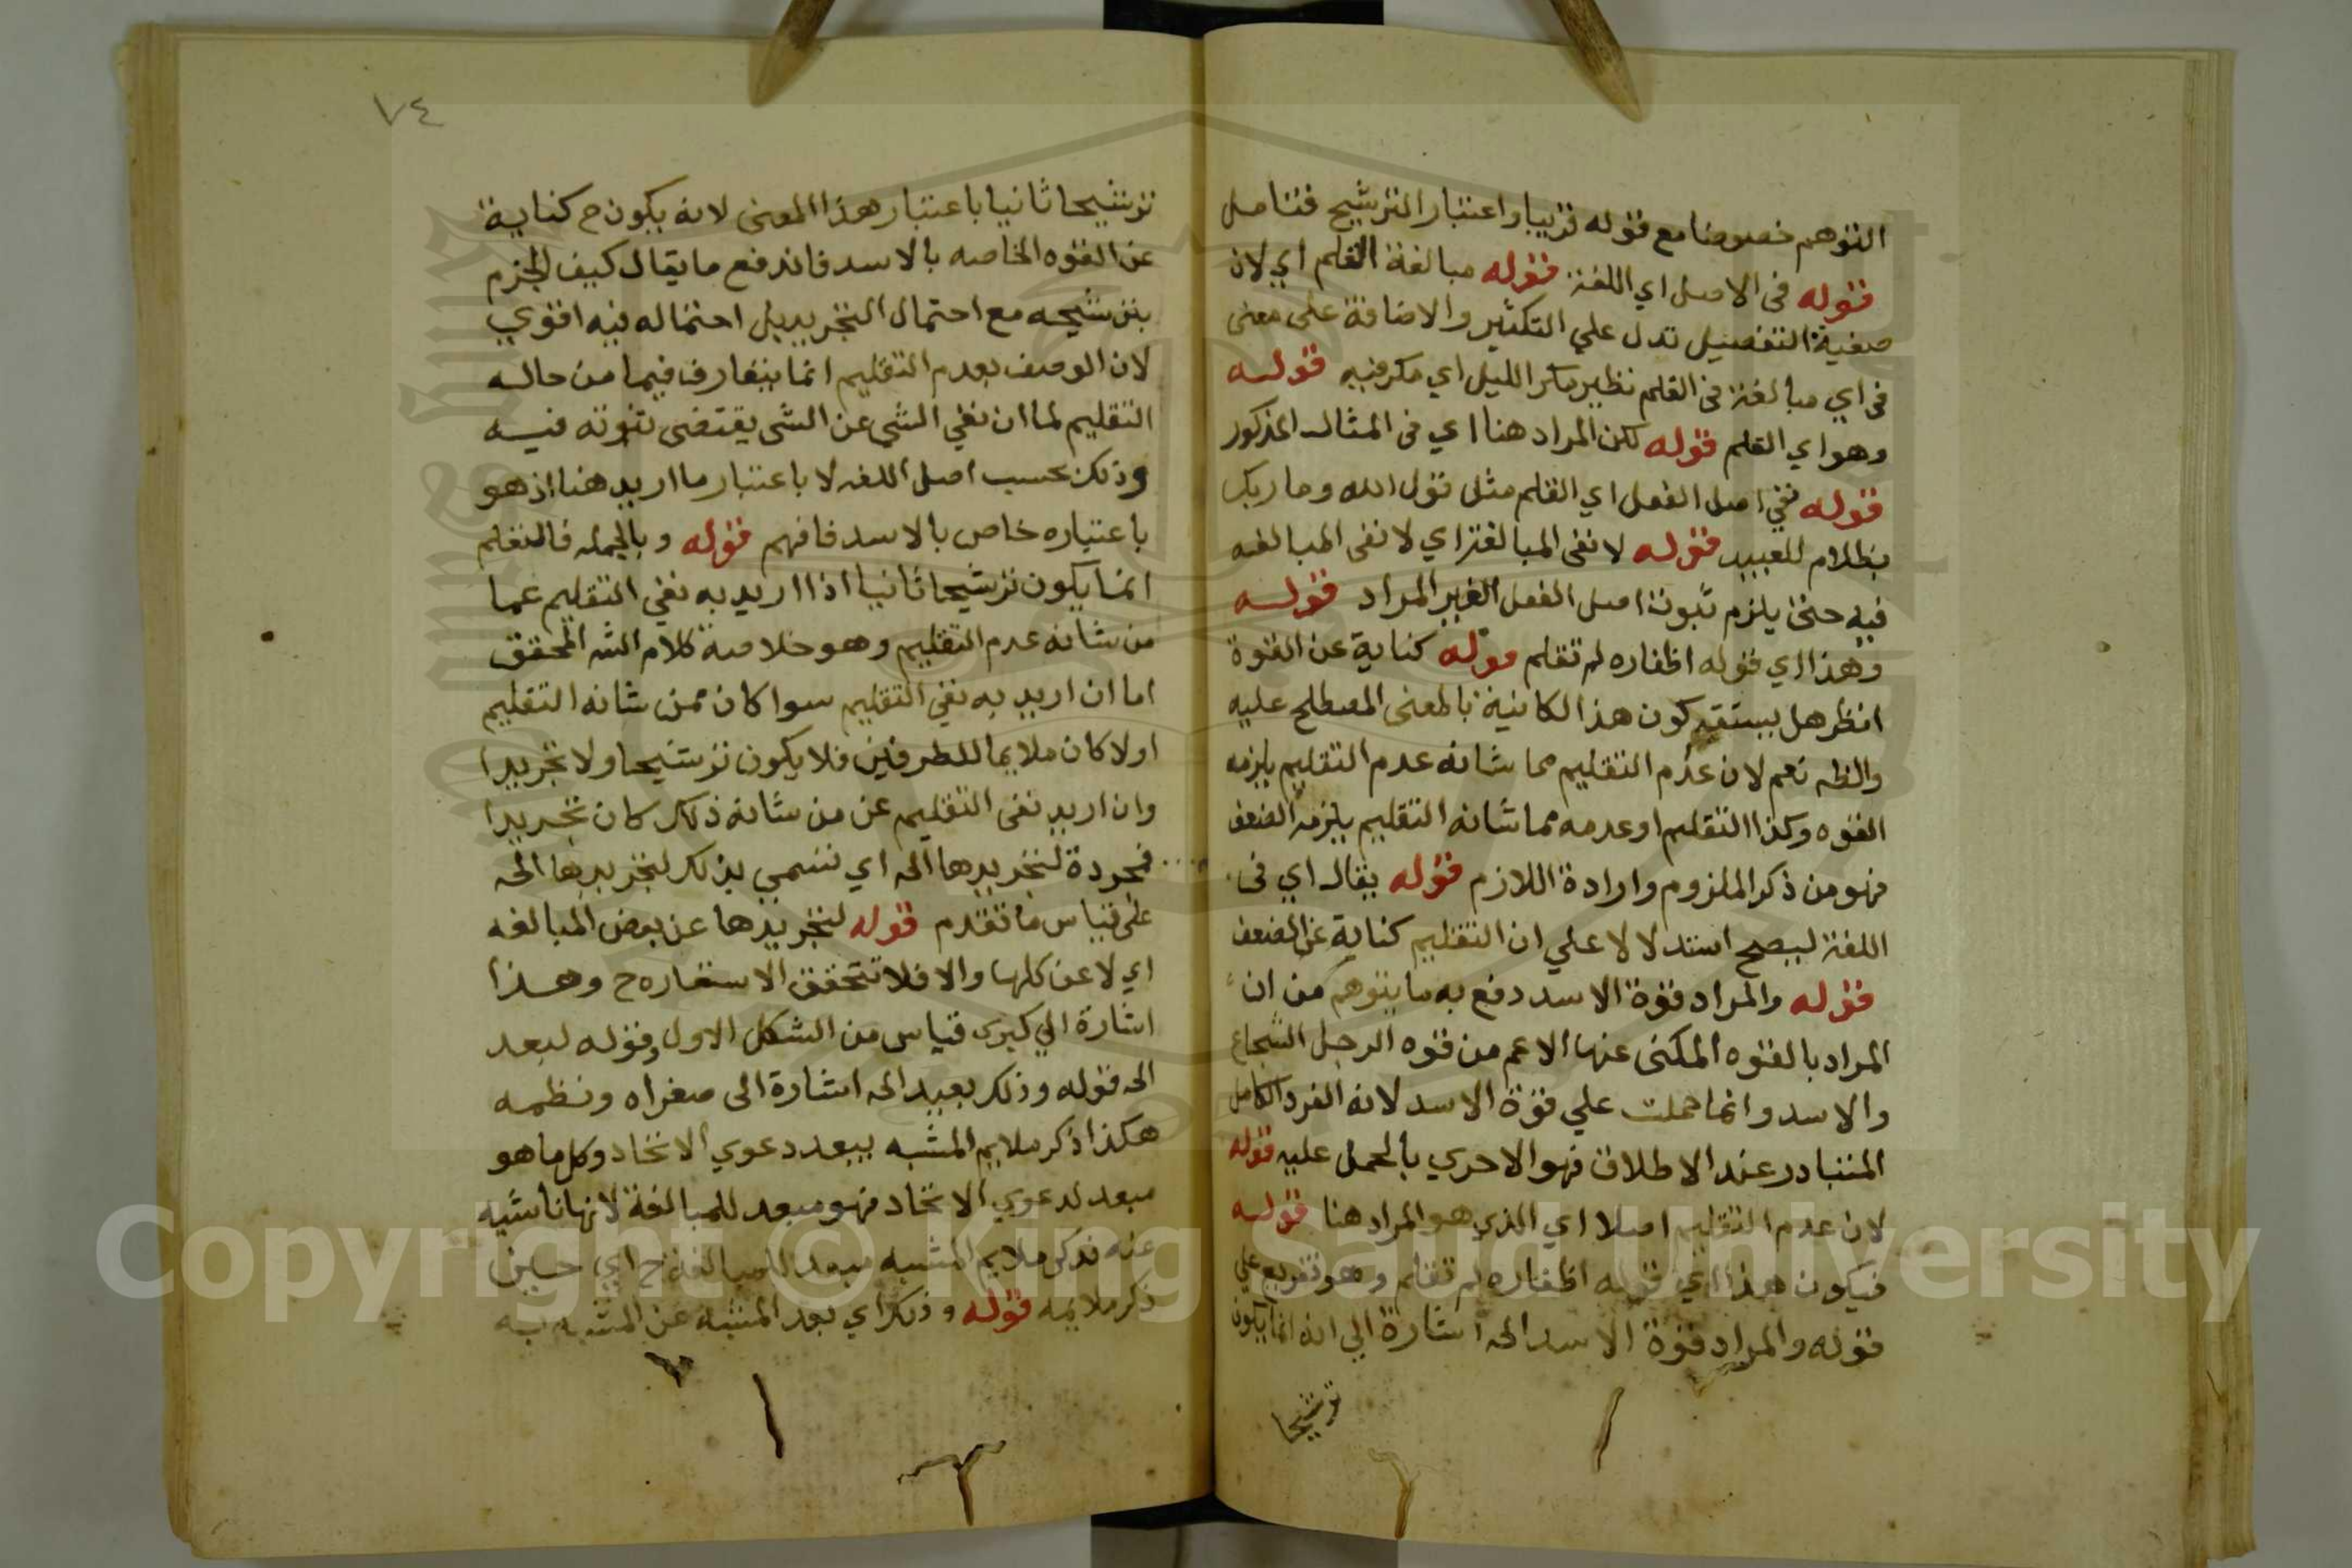 التوهم خصوصا مع قوله قريبا واعتبار الترشيح فتامل
قوله في الاصل اي اللغة قوله مبالغة القلم اي لان
صغية التفضيل تدل علي التكثير والاضافة على معنى
في اي مبالغة في القلم نظير مكر الليل اي مكر فيه قوله
وهو اي القلم قوله لكن المراد هنا اي في المثال المذكور
قوله نفي اصل الفعل اي القلم مثل قول الله وما ربك
بظلام للعبيد قوله لا نفى المبالغة اي لا نفى المبالغه
فيه حتى يلزم ثبوت اصل الفعل الغير المراد قوله
وهذا اي قوله اظفاره لم تقلم قوله كناية عن القوة
انظر هل يستقيم كون هذا الكناية بالمعنى المصطلح عليه
والظه نعم لان عدم التقليم مما شانه عدم التقليم يلزمه
القوه وكذا التقليم او عدمه مما شانه التقليم يلزمه الضعف
فهو من ذكر الملزوم وارادة اللازم قوله يقال اي في
اللغة ليصح استدلالا علي ان التقليم كناية عن الضعف
قوله والمراد قوة الاسد دفع به ما يتوهم من ان
المراد بالقوه المكنى عنها الاعم من قوه الرجل الشجاع
والاسد وانما حملت علي قوة الاسد لانه الفرد الكامل
المتبادر عند الاطلاق فهو الاحري بالحمل عليه قوله
لان عدم التقليم اصلا اي الذي هو المراد هنا قوله
فيكون هذا اي قوله اظفاره لم تقلم وهو تفريع علي
قوله والمراد قوة الاسد الخ اشارة الي انه انما يكون
ترشيحا
٧٤
ترشيحا ثانيا باعتبار هذا المعنى لانه يكون ح كناية
عن القوه الخاصه بالاسد فاندفع ما يقال كيف الجزم
بترشيحه مع احتمال التجريد بل احتماله فيه اقوي
لان الوصف بعدم التقليم انما يتعارف فيما من حاله
التقليم لما ان نفي الشي عن الشي يقتضى ثبوته فيه
وذلك بحسب اصل اللغه لا باعتبار ما اريد هنا اذ هو
باعتباره خاص بالاسد فافهم قوله وبالجمله فالتقلم
انما يكون ترشيحا ثانيا اذا اريد به نفي التقليم عما
من شانه عدم التقليم وهو خلاصة كلام الشه المحقق
اما ان اريد به نفي التقليم سوا كان ممن شانه التقليم
اولا كان ملايما للطرفين فلا يكون ترشيحا ولا تجريدا
وان اريد نفى التقليم عن من شانه ذلك كان تجريدا
فمجردة لتجريدها الخ اي تسمي بذلك لتجريدها الخ
على قياس ما تقدم قوله لتجريدها عن بعض المبالغه
اي لا عن كلها والا فلا تتحقق الاستعاره ح وهذا
اشارة الي كبرى قياس من الشكل الاول وقوله لبعد
الخ قوله وذلك بعيد الخ اشارة الى صغراه ونظمه
هكذا ذكر ملايم المشبه يبعد دعوي الاتحاد وكل ما هو
مبعد لدعوي الاتحاد فهو مبعد للمبالغة لانها ناشيه
عنه فذكر ملايم المشبه مبعد للمبالغة ح اي حين
ذكر ملايمه قوله وذلك اي بعد المشبه عن المشبه به
Copyright © King Saud University